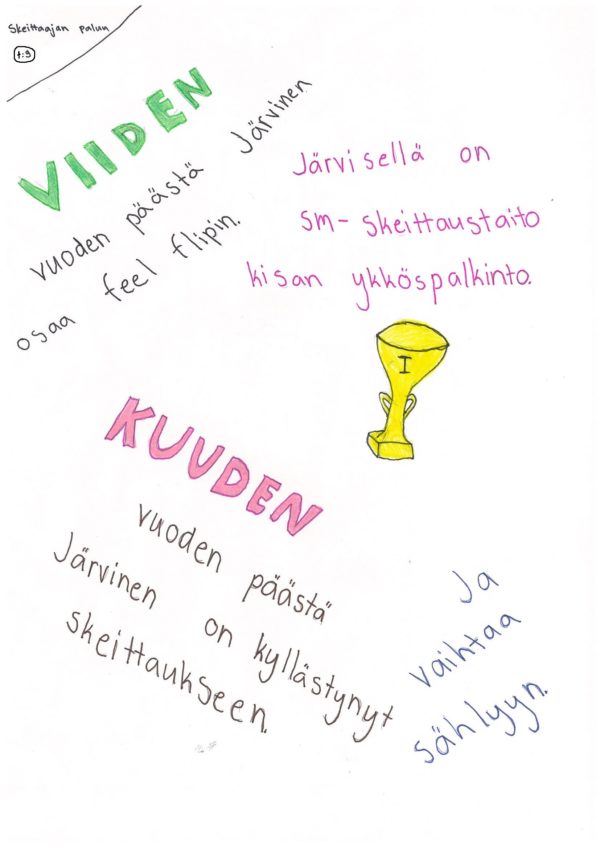 Skeittaajan paluu
t:9
VIIDEN
vuoden päästä Järvinen
osaa feel flipin.
Järvisellä on
SM-skeittaustaito
kisan ykköspalkinto.
I
KUUDEN
vuoden päästä
Järvinen on kyllästynyt
skeittaukseen.
Ja
vaihtaa
sählyyn.